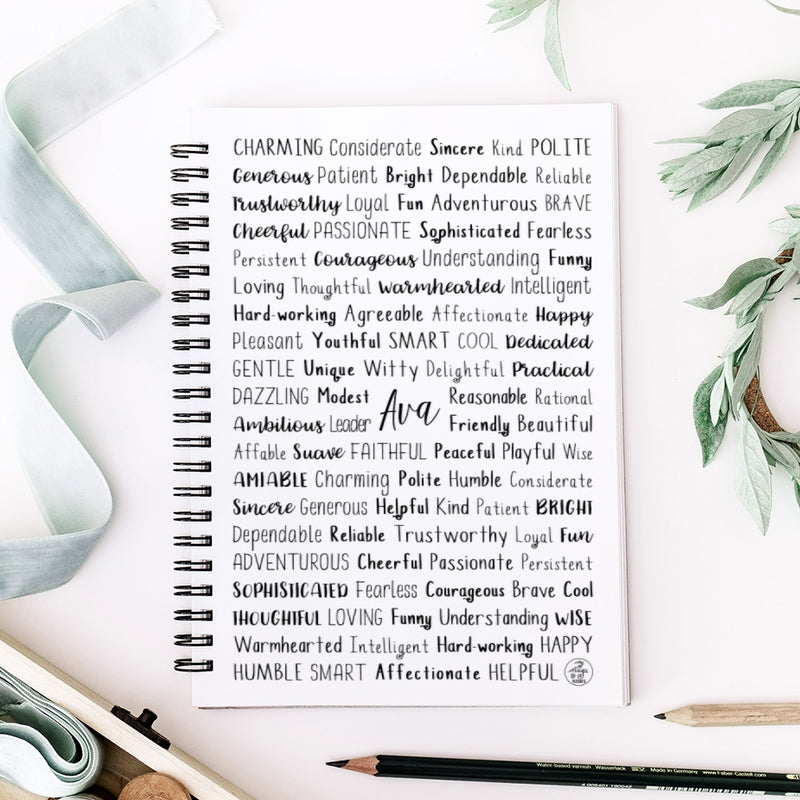 CHARMING Considerate Sincere Kind POLITE
Generous Patient Bright Dependable Reliable
Trustworthy Loyal Fun Adventurous BRAVE
Cheerful PASSIONATE Sophisticated Fearless
Persistent Courageous Understanding Funny
Loving Thoughtful Warmhearted Intelligent
Hard-working Agreeable Affectionate Happy
Pleasant Youthful SMART COOL Dedicated
GENTLE Unique Witty Delightful Practical
DAZZLING Modest Reasonable Rational
Ava
Ambitious Leader Friendly Beautiful
Affable Suave FAITHFUL Peaceful Playful Wise
AMIABLE Charming Polite Humble Considerate
Sincere Generous Helpful Kind Patient BRIGHT
Dependable Reliable Trustworthy Loyal Fun
ADVENTUROUS Cheerful Passionate Persistent
SOPHISTICATED Fearless Courageous Brave Cool
THOUGHTFUL LOVING Funny Understanding WISE
Warmhearted Intelligent Hard-working HAPPY
HUMBLE SMART Affectionate HELPFUL
Water-based varnish Wasserlack Made in Germany www.Faber-Castell.com